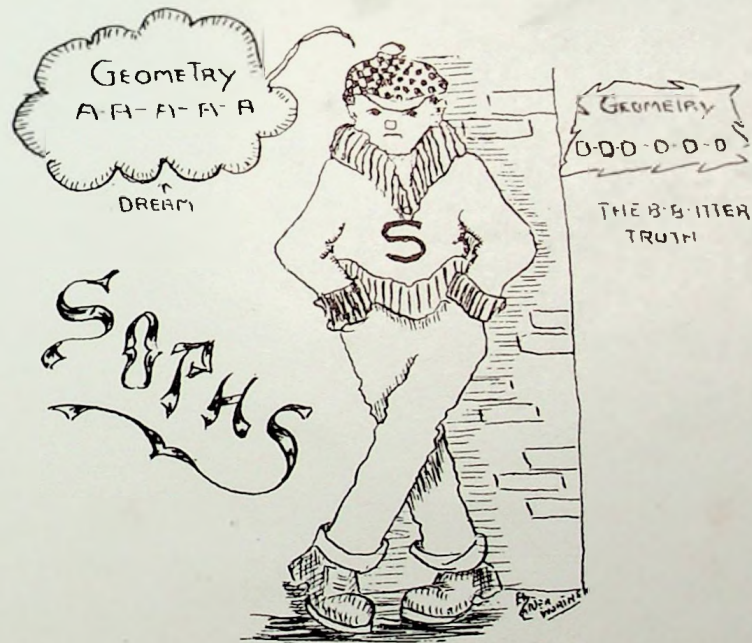 GEOMETRY
A-A-A-A-A
DREAM
GEOMETRY
D-D-D-D-D-D
THE B-B-ITTER
TRUTH
S
SOPHS